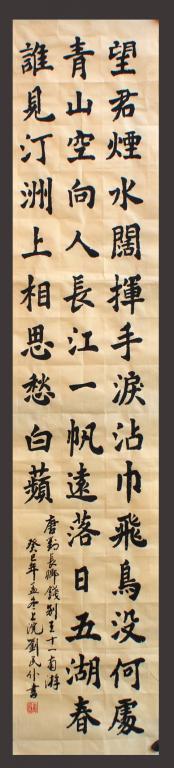 望君煙水闊揮手淚沾巾飛鳥没何處
青山空向人長江一帆遠落日五湖春
誰見汀洲上相思愁白蘋
唐劉長卿餞别王十一南游
癸巳年孟冬上浣劉民仆書